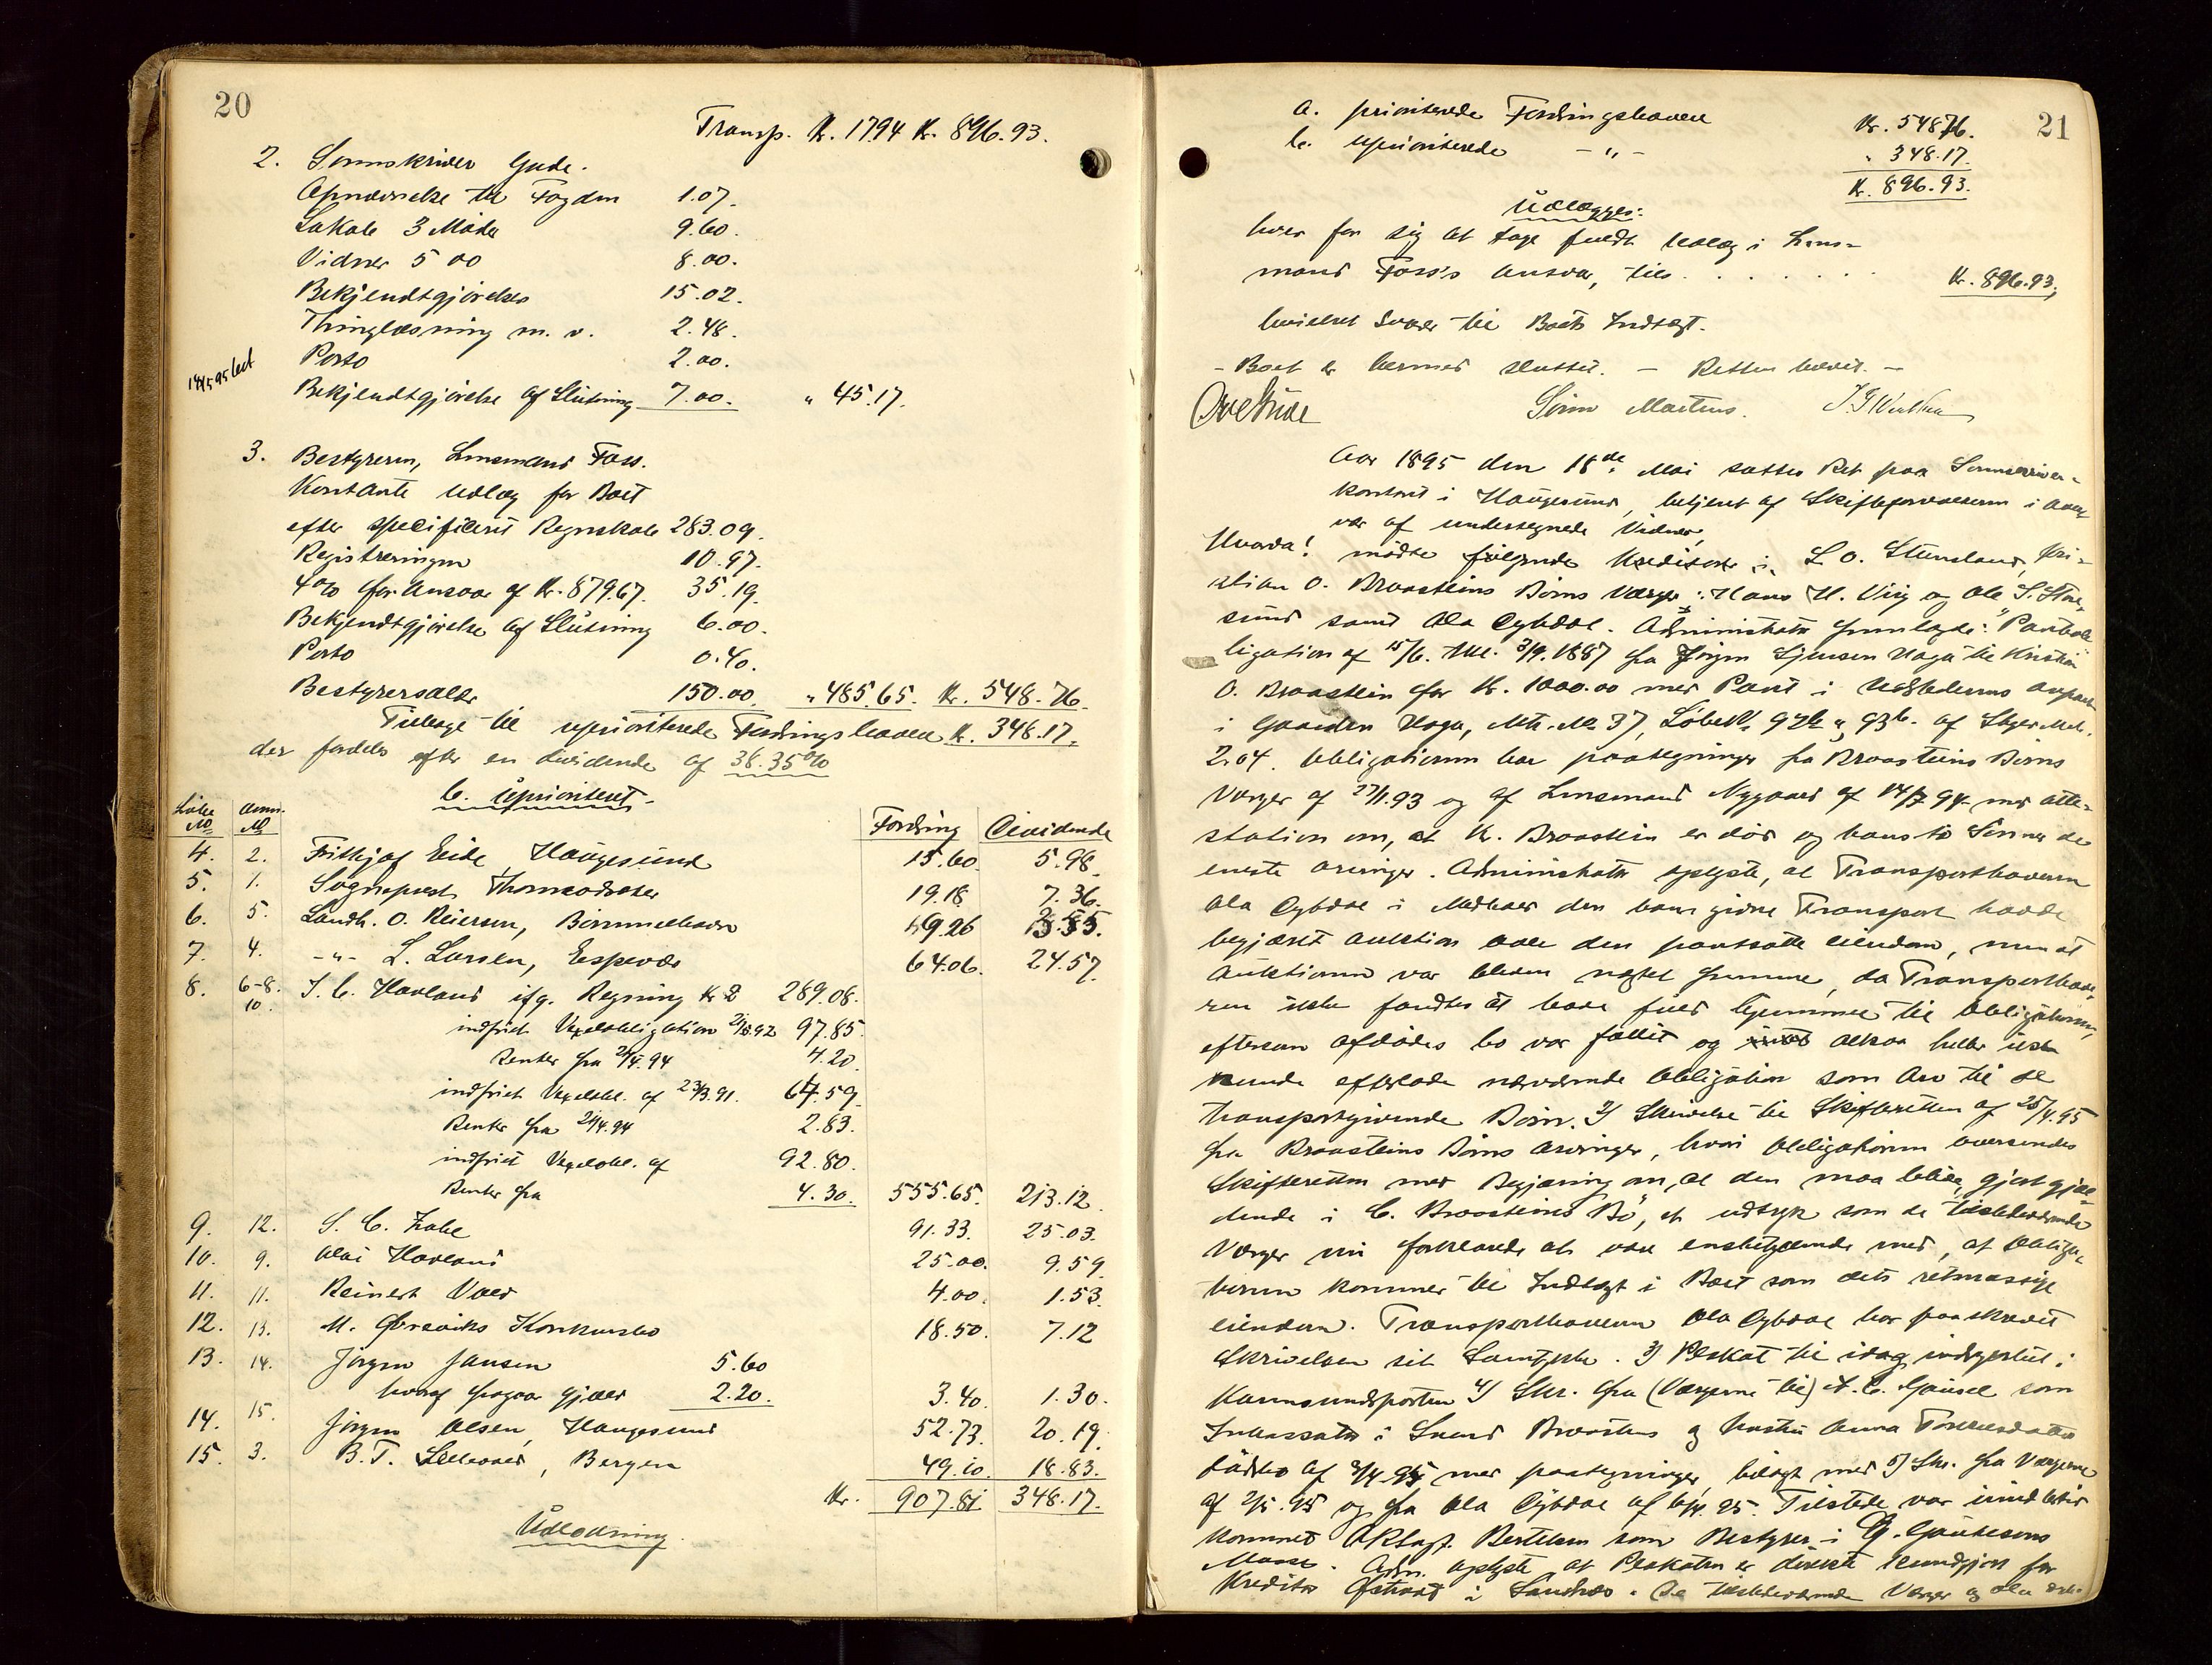 20
Transp. Kr. 17.94 Kr. 896.93.
2. Sorenskriver Gude.
Opnævnelse til Fogden 1.07.
Lokale 3 Møder 9.60.
Vidner 5 00 8.00.
Bekjendtgjørelser 15.02.
Thinglæsning m. v. 2.48.
Porto 2.00.
Bekjendtgjørelse af Slutning 7.00. " 45.17.
3. Bestyreren, Lensmand Foss.
Kontante Udlæg for Boet
efter specificeret Regnskab 283.09.
Registreringen 10.97.
4% for Ansvar af Kr. 879.67. 35.19.
Bekjendtgjørelse af Slutning 6.00.
Porto 0.40.
Bestyrersalær 150.00. " 485.65. Kr. 548.76.
Tilbage til uprioriterede Fordringshavere Kr. 348.17.
der fordeles efter en dividende af 38.35%
b. Uprioriteret.
Løbe No Anm. No Fordring Dividende
4. 2. Frithjof Eide, Haugesund 15.60. 5.98.
5. 1. Sogneprest Thorsodsæter 19.18 7.36.
6. 5. Landh. O. Reiersen, Bømmelhavn 49.26 13.55.
7. 4. -"- L. Larsen, Espevær 64.06. 24.57.
8. 6-8. 10. J. C. Havland ifg. Regning 289.08.
indfriet Vexelobligation 97.85.
Renter fra 21/4.94 4.20.
indfriet Vexelobl. af 23/3.91. 64.59.
Renter fra 21/4.94 2.83.
indfriet Vexelobl. af 92.80.
Renter fra 4.30. 555.65. 213.12.
9. 12. S. C. 91.33. 25.03.
10. 9. Havland 25.00. 9.59.
11. 11. Reinert 4.00. 1.53.
12. 13. M. Konkursbo 18.50. 7.12
13. 14. Jørgen Jansen 5.60
hvoraf fragaar gjæld 2.20. 3.40. 1.30.
14. 15. Jørgen Olsen, Haugesund 52.73. 20.19.
15. 3. B. T. Bergen 49.10. 18.83.
Kr. 907.81 348.17.
Udlodning.
21
a. prioriterede Fordringshavere Kr. 548.76.
b. uprioriterede -"- " 348.17.
Kr. 896.93.
Udlægges:
hver for sig at tage fuldt Udlæg i Lens-
mand Foss's Ansvar, tils. . . . . . . . Kr. 896.93,
hvilket svarer til Boets Indtægt.
- Boet er hermed sluttet. - Retten hævet. -
Ove Gude Sørn Martens.
Aar 1895 den 18de Mai sattes Ret paa Sorenskriver-
kontoret i Haugesund, betjent af Skifteforvalteren i Over-
vær af undertegnede Vidner,
Hvorda! mødte følgende Kreditorer: L. O. Stensland, Kri-
stian O. Braasteins Børns Værger: Hans H. Vig og Ole S.
sund samt Ola Øybdal. Administrator fremlagde: Pantob-
ligation af 15/6. thl. 3/9.1887 fra Jørgen Sjursen Haga til Kristian
O. Braastein for Kr. 1000.00 med Pant i Udstederens anpart
i Gaarden Haga, Mtr. No 37, Løbe No 92b & 93b. af Skyld Mrk.
2.04. Obligationen har paategninger fra Braasteins Børns
Værger af 27/1.93 og af Lensmand Nygaard af 14/7 94 med atte-
station om, at K. Braastein er død og hans to Sønner de
eneste arvinger. Administrator oplyste, at Transporthaveren
Ola Øybdal i Medhold den ham givne Transport havde
begjæret Auktion over den pantsatte eiendom, men at
Auktionen var bleven nægtet fremme, da Transporthave-
ren ikke fandtes at have fuld Hjemmel til Obligationen,
eftersom afdødes bo var fallit og altsaa heller ikke
kunde efterlade nærværende Obligation som Arv til de
transportgivende Børn. 2) Skrivelse til Skifteretten af 25/4.95
fra Braasteins Børns arvinger, hvori Obligationen oversendes
Skifteretten med Begjæring om, at den maa blive gjort gjæl-
dende i C. Braasteins Bo, et udtryk som de tilstedeværende
Værger nu forklarede at være enstydende med, at Obliga-
tionen kommer til Indtægt i Boet som dets retmæssige
eiendom. Transporthaveren Ola Øybdal har paaskrevet
Skrivelsen sit Samtykke. 3) Plakat til idag, indrykket i
Karmsundsposten 4) Skr. fra (Værgerne til) som
Inkassator i Braastens og Hustru Anna
dødsbo af 3/4.95 med paategninger, bilagt med 5) Skr. fra Værgerne
af 2/5.95 og fra Ola Øybdal af 6/4.95. Tilstede var imidlertid
kommet Bertelsen som Bestyrer i G.
Masse. Adm. oplyste at Plakaten er direkte kundgjort for
Kreditor i De tilstedeværende Værger og Ola